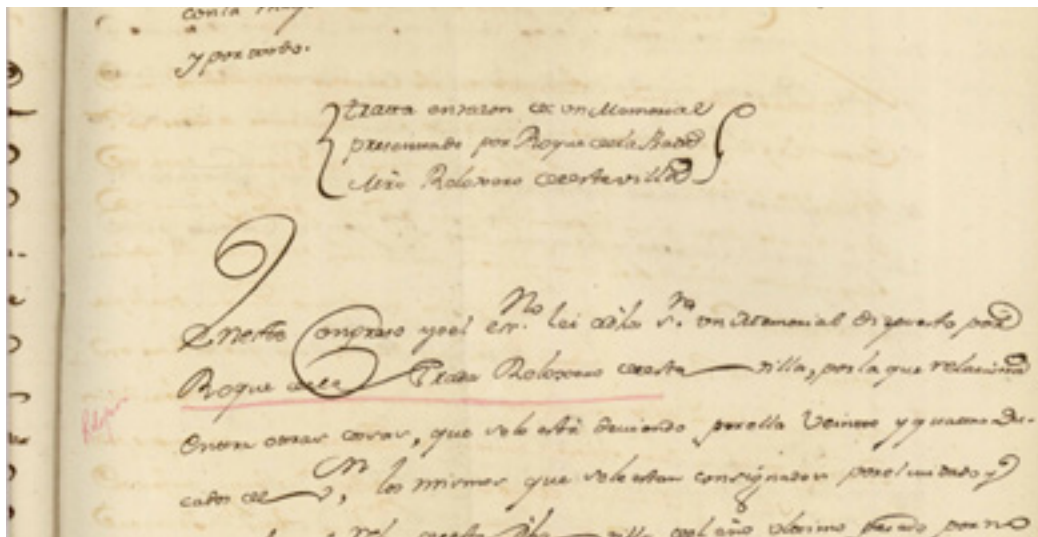 con la
y por todo.
tratta en razon de un Memorial
presentado por Roque de la
Mro Reloxero de esta villa
En este Congreso yo el essno. lei a la va. un Memorial dispuesto por
Roque de la Prada Reloxero de esta villa, por la que relaciona
Relojero
entre otras cosas, que se le está deviendo por ella Veinte y quattro Du-
cados de vn, los mismos que se le estan consignados por el cuidado y
de esta villa del año ultimo passado por no